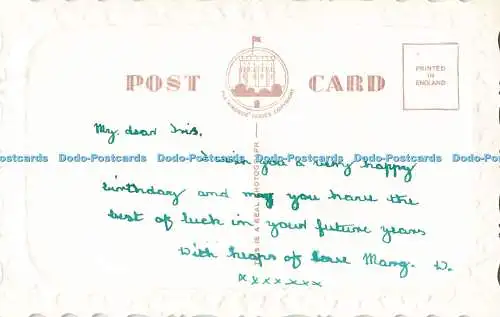 POST CARD
THE "WINDSOR" SERIES COPYRIGHT
PRINTED
IN
ENGLAND
THIS IS A REAL PHOTOGRAPH
My dear Iris,
I wish you a very happy
Dodo-Postcards Dodo-Postcards Dodo-Postcards Dodo-Postcards Dodo-Postcards
birthday and may you have the
best of luck in your future years
With heaps of love Marg. W.
xxxxxxx